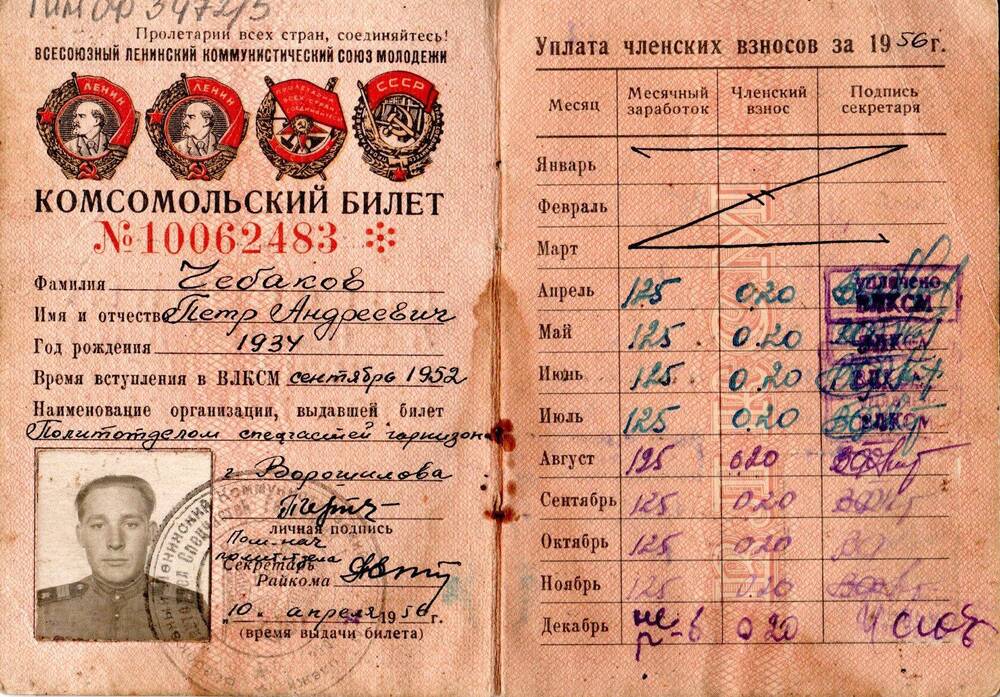 Пролетарии всех стран, соединяйтесь!
ВСЕСОЮЗНЫЙ ЛЕНИНСКИЙ КОММУНИСТИЧЕСКИЙ СОЮЗ МОЛОДЕЖИ
ЛЕНИН
ЛЕНИН
ПРОЛЕТАРИИ ВСЕХ СТРАН СОЕДИНЯЙТЕСЬ
СССР
КОМСОМОЛЬСКИЙ БИЛЕТ
№10062483
Фамилия Чебаков
Имя и отчество Петр Андреевич
Год рождения 1934
Время вступления в ВЛКСМ сентябрь 1952
Наименование организации, выдавшей билет
Политотделом спецчастей гарнизона
г Ворошилова
личная подпись
Пом. нач
политотдела
Секретарь
Райкома
"10" апреля 1956 г.
(время выдачи билета)
Уплата членских взносов за 1956 г.
Месяц Месячный заработок Членский взнос Подпись секретаря
Январь
Февраль
Март
Апрель 125 0.20 Уплачено ВЛКСМ
Май 125 0.20
Июнь 125 0.20
Июль 125 0.20
Август 125 0.20
Сентябрь 125 0.20
Октябрь 125 0.20
Ноябрь 125 0.20
Декабрь не р-в 0.20